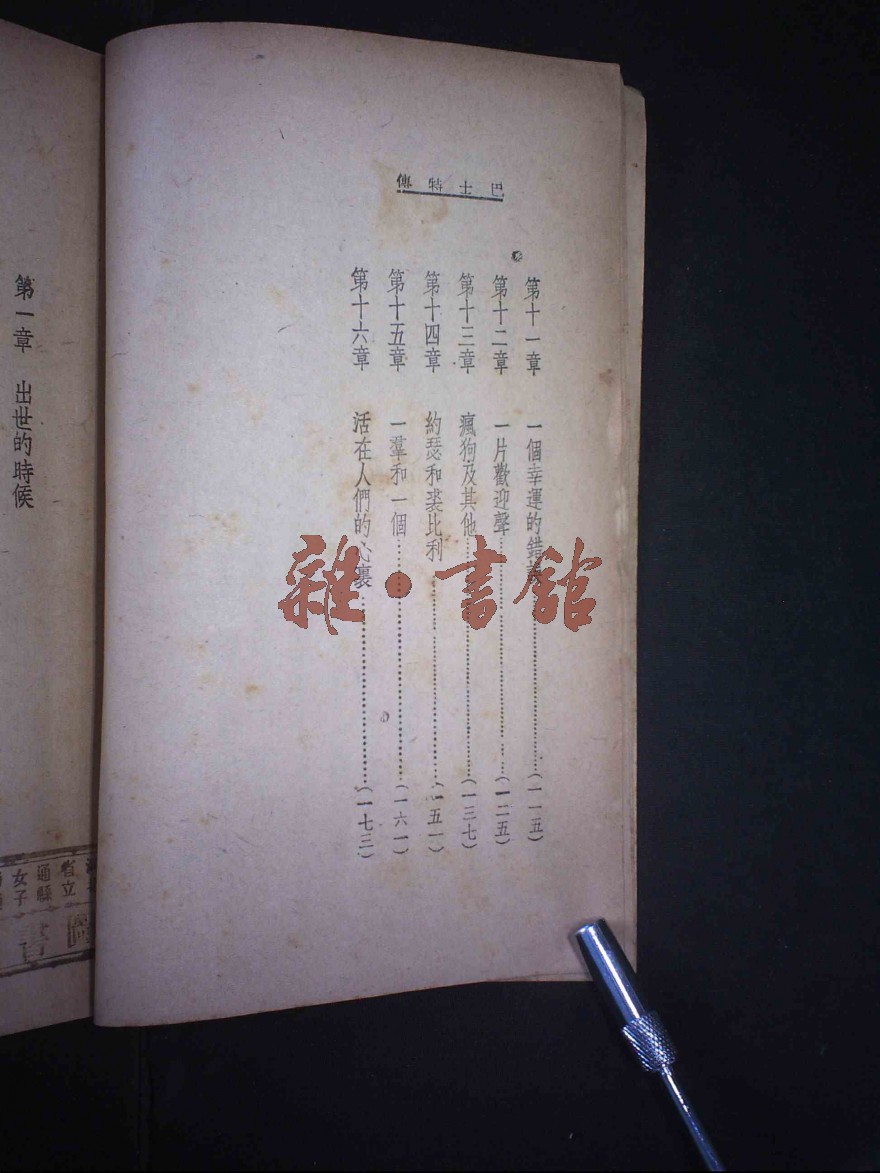 巴士特傳
第十一章 一個幸運的錯……(一一五)
第十二章 一片歡迎聲……(一二五)
第十三章 瘋狗及其他……(一三七)
第十四章 約瑟和裘比利……(一五一)
第十五章 一羣和一個……(一六一)
第十六章 活在人們的心裏……(一七三)
雜·書館
第一章 出世的時候
省立
通縣
女子